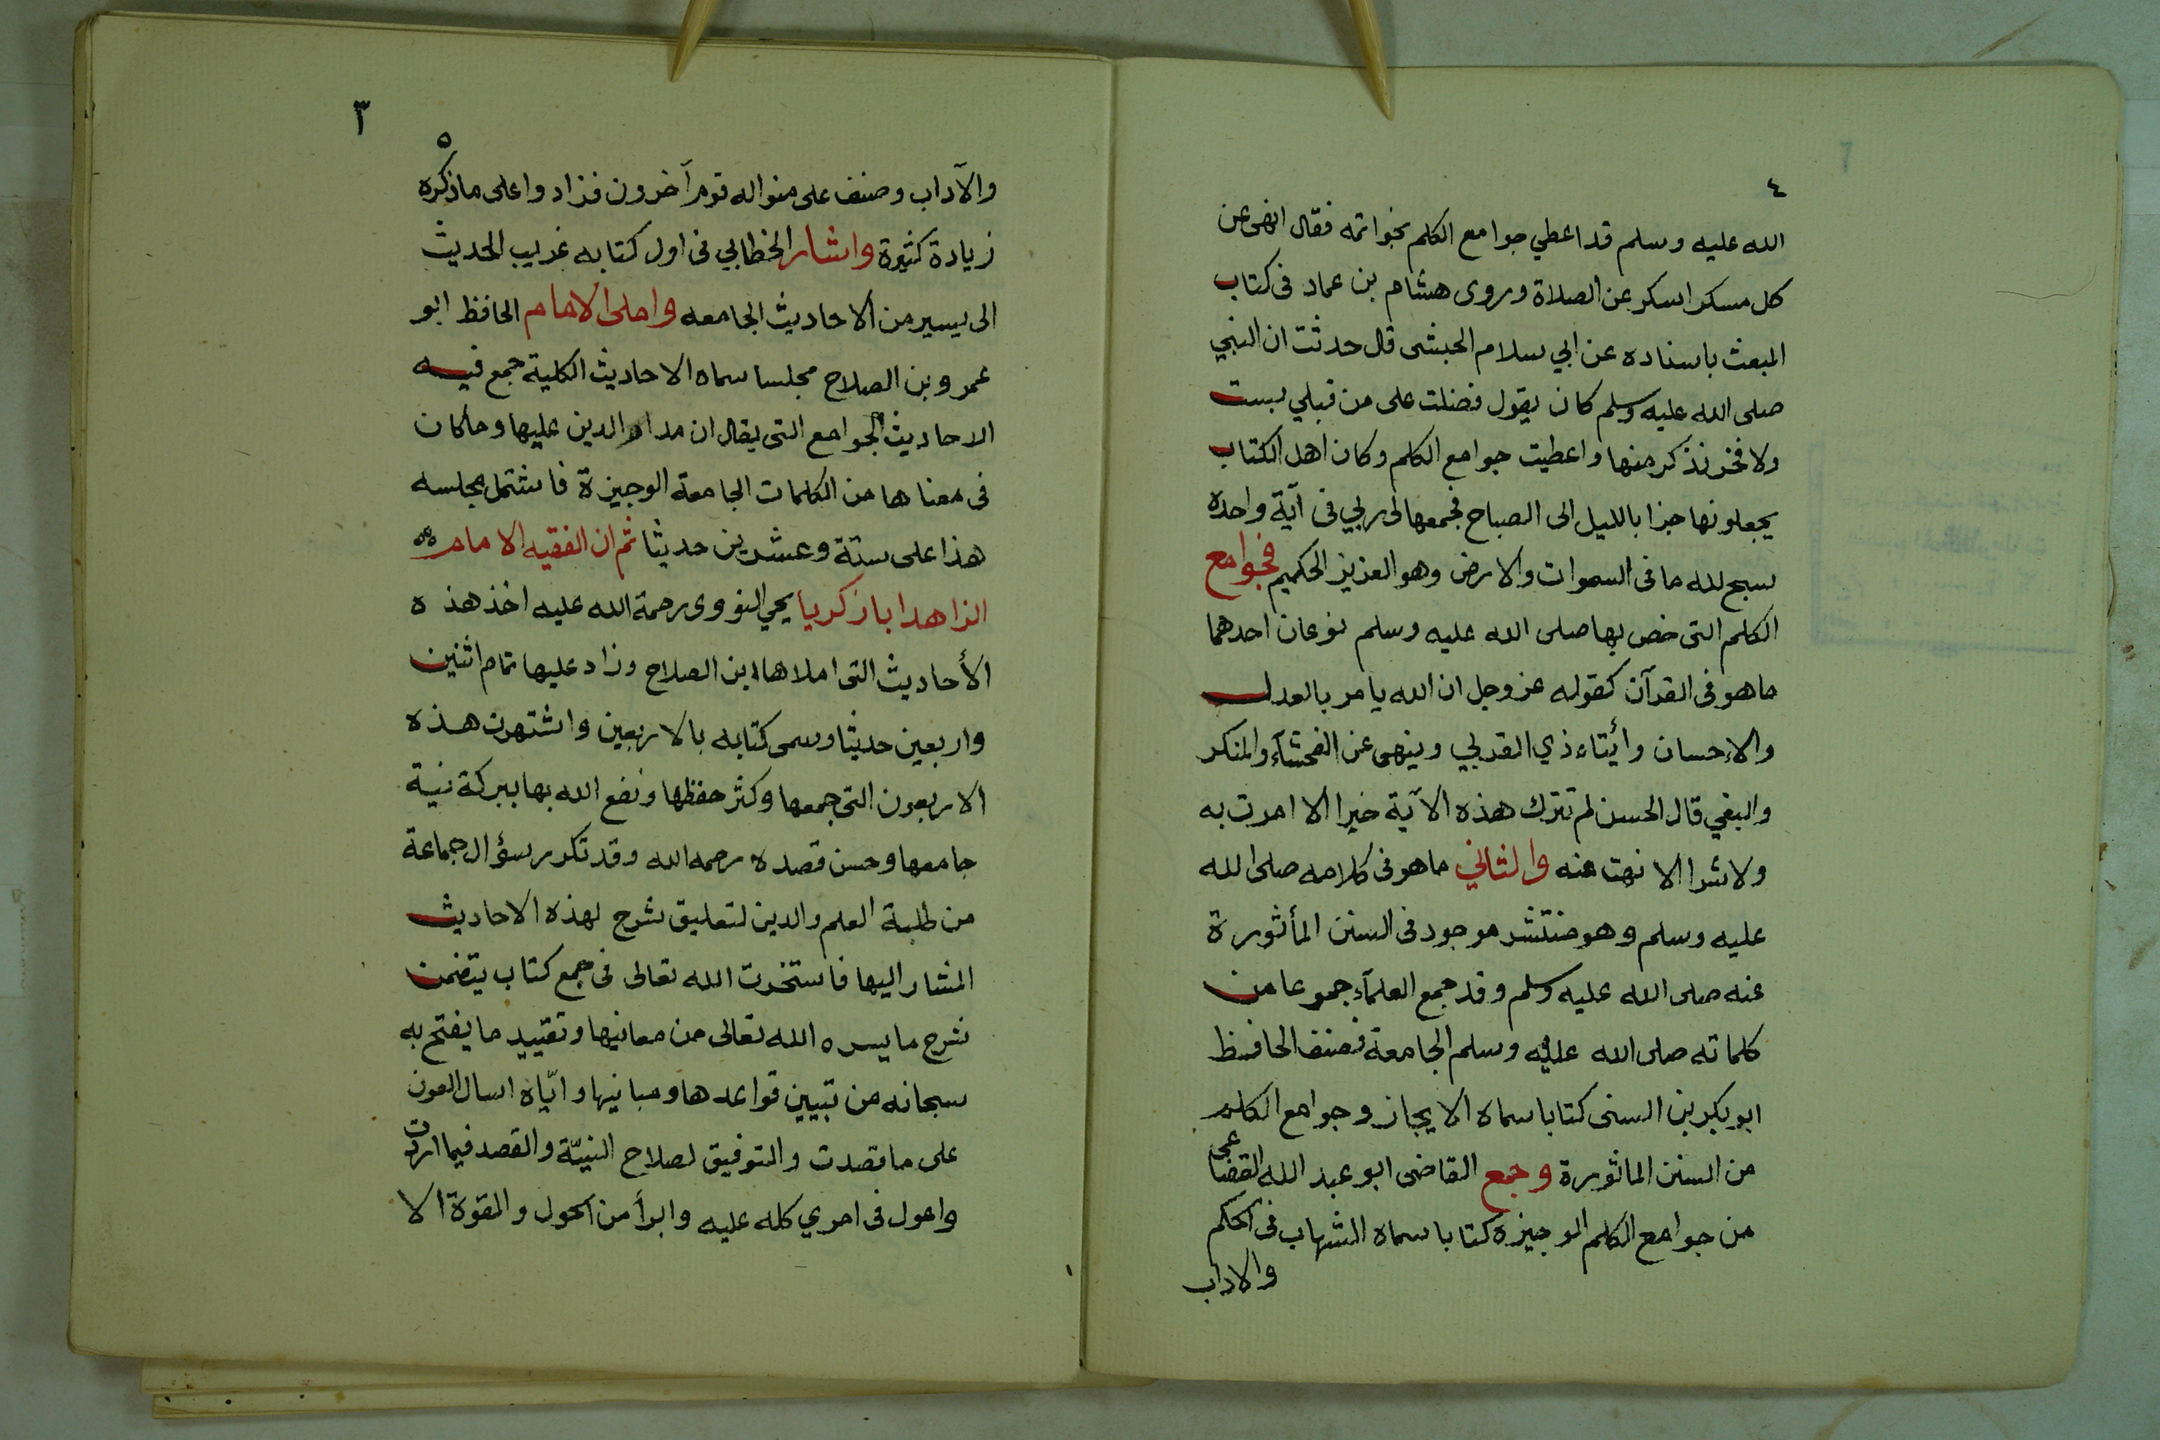 ٤
الله عليه وسلم قد اعطي جوامع الكلم بخواتمه فقال انهى عن
كل مسكر اسكر عن الصلاة وروى هشام بن عماد فى كتاب
المبعث باسناده عن ابي سلام الحبشى قال حدثت ان النبي
صلى الله عليه وسلم كان يقول فضلت على من قبلي بست
ولا فخر نذكر منها واعطيت جوامع الكلم وكان اهل الكتاب
يجعلونها جزا بالليل الى الصباح فجمعها لى ربي فى آية واحدة
سبح لله ما فى السموات والارض وهو العزيز الحكيم فجوامع
الكلم التى خص بها صلى الله عليه وسلم نوعان احدهما
ما هو فى القرآن كقوله عز وجل ان الله يامر بالعدل
والإحسان وأيتاء ذي القربي وينهى عن الفحشآء والمنكر
والبغي قال الحسن لم تترك هذه الآية خيرا الا امرت به
ولا شرا الا نهت عنه والثاني ما هو فى كلامه صلى الله
عليه وسلم وهو منتشر موجود فى السنن المأثورة
عنه صلى الله عليه وسلم وقد جمع العلمآء جموعا من
كلماته صلى الله عليه وسلم الجامعة فصنف الحافظ
ابو بكر بن السنى كتابا سماه الايجاز وجوامع الكلم
من السنن الماثورة وجمع القاضى ابو عبد الله القضاعى
من جوامع الكلم الوجيزه كتابا سماه الشهاب فى الحكم
والاداب
٣
٥
والآداب وصنف على منواله قوم آخرون فزادوا على ما ذكره
زيادة كثيرة واشار الخطابي فى اول كتابه غريب الحديث
الى يسير من الاحاديث الجامعه واملى الامام الحافظ ابو
عمرو بن الصلاح مجلسا سماه الاحاديث الكلية جمع فيه
الاحاديث الجوامع التى يقال ان مدار الدين عليها وما كان
فى معناها من الكلمات الجامعة الوجيزة فاشتمل مجلسه
هذا على ستة وعشرين حديثا ثم ان الفقيه الامام
الزاهد ابا زكريا يحي النووى رحمة الله عليه اخذ هذه
الأحاديث التى املاها ابن الصلاح وزاد عليها تمام اثنين
واربعين حديثا وسمى كتابه بالاربعين واشتهرت هذه
الاربعون التى جمعها وكثر حفظها ونفع الله بها ببركة نية
جامعها وحسن قصده رحمه الله وقد تكرر سؤال جماعة
من طلبة العلم والدين لتعليق شرح لهذه الاحاديث
المشار اليها فاستخرت الله تعالى فى جمع كتاب يتضمن
شرح ما يسره الله تعالى من معانيها وتقييد ما يفتح به
سبحانه من تبيين قواعدها ومبانيها وايّاه اسال العون
على ما قصدت والتوفيق لصلاح النيّة والقصد فيما اردت
واعول فى امري كله عليه وابرأ من الحول والقوة الا